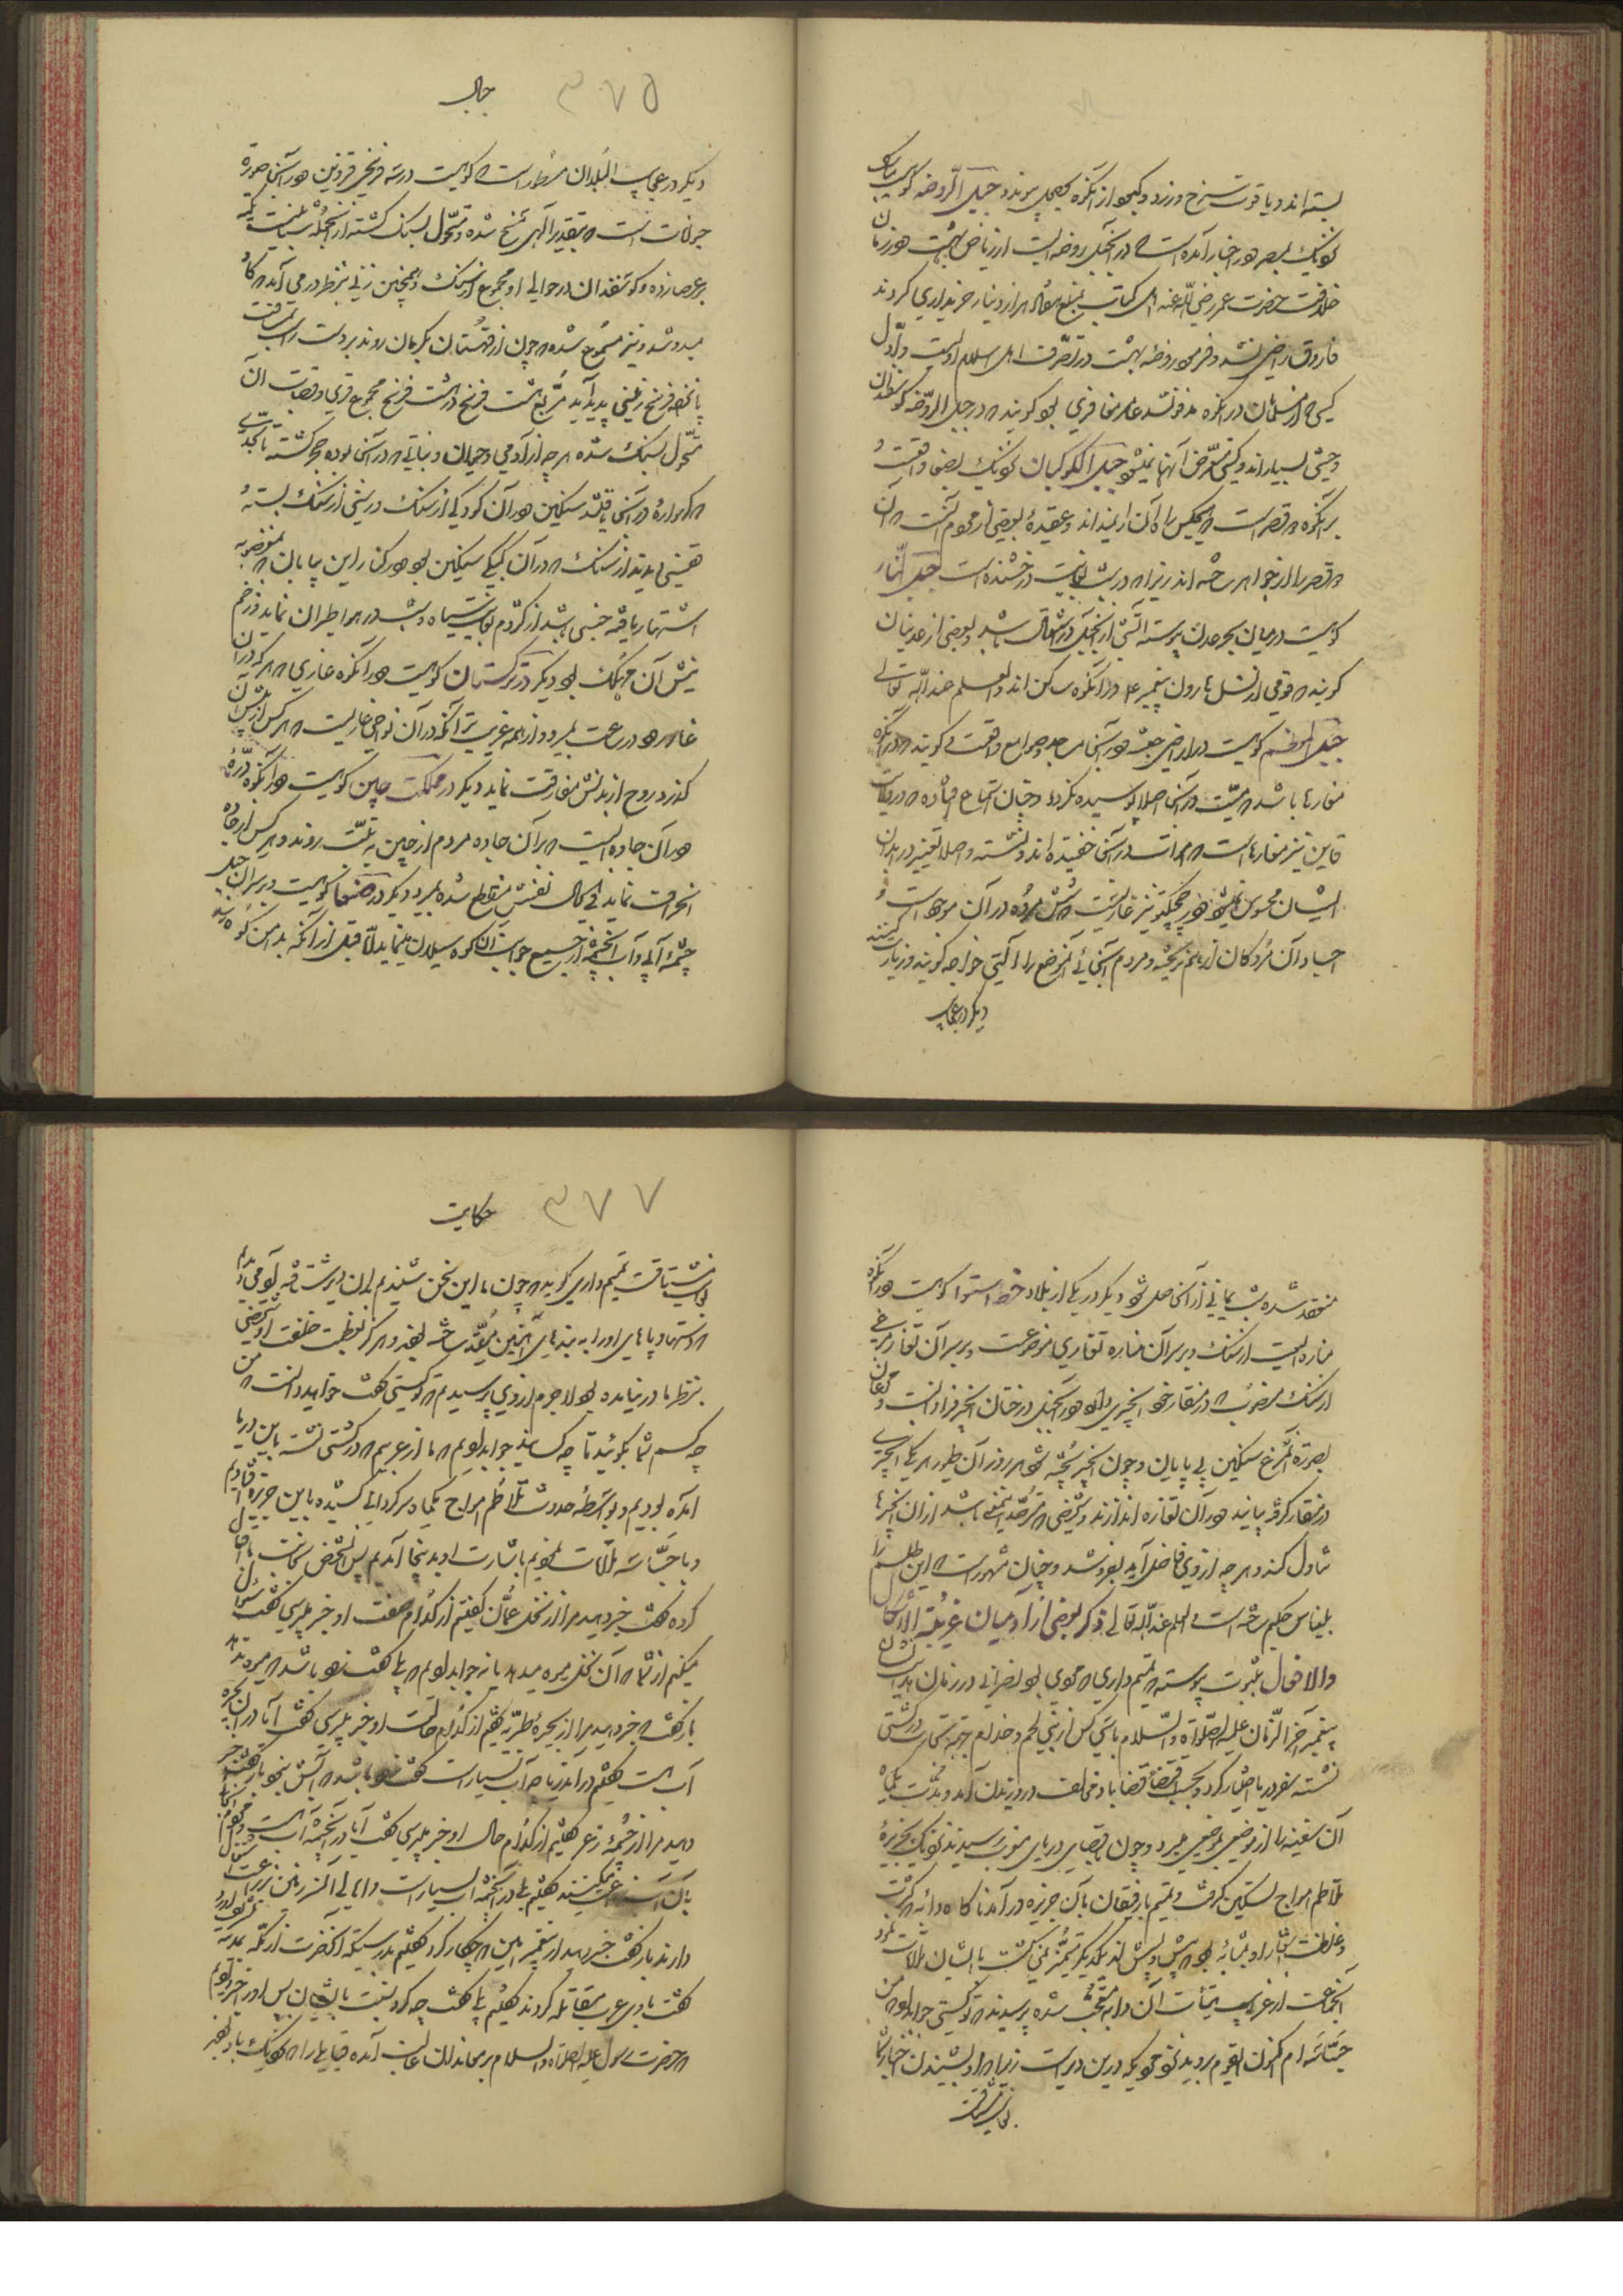 بسته اند و یاقوت سرخ و زرد و کبود از آنکوه بحصول پیوندد جبل الروضه کوهیست
نزدیک بمصر و در اخبار آمده است که در آنجبل روضه ایست از ریاض بهشت و در زمان
خلافت حضرت عمر رضی الله عنه اهل کتاب بمبلغ هزار دینار خریداری کردند
فاروق راضی نشد و فرمود روضه بهشت در تصرف اهل اسلام اولیست و اول
کسی که از مسلمانان در آنکوه مدفون شد عامر مغافری بود گویند که در جبل الروضه گوسفندان
وحشی بسیار اند و کسی متعرض آنها نمیشود جبل الکوکبان نزدیک بصنعا واقعست و
بر آنکوه دو قصر است که هیچکس راه آن را نمیداند و عقیده بعضی از مردم آنست که آن
دو قصر را از جواهر ساخته اند زیرا که در شب بغایت درخشنده است جبل النار
کوهیست در میان بحر عدن پیوسته آتش از آنجبل در اشتعال باشد و بعضی از عدنیان
گویند که قومی از نسل هارون پیغمبر علم در آنکوه ساکن اند والعلم عند الله تعالی
کوهیست در اراضی حبشه و در آنجا مساجد و صوامع واقعست گویند که در آنکوه
مغارها باشد که میت در آنجا اصلا پوسیده نگردد و چنان استماع افتاده که در ولایت
قاین نیز مغارهاست که اموات در آنجا خفتیده اند و نشسته و اصلا تغییر در ابدان
ایشان محسوس نمیشود و در چچکتو نیز غاریست که شش مرده در آن موجود است و
اجساد آن مردگان از هم نریخته و مردم آنجائی آنموضع را خواجه گویند و زیارت کنند
دیگر در عجایب
۳۷۵
جبال
دیگر در عجایب البلدان مسطور است که کوهیست در سه فرسخی قزوین و در آنجا صورة
حیوانات است که بتقدیر الهی مسخ شده و متحول بسنگ گشته از آنجمله شبانیست تکیه
بر عصا زده و گوسفندان در حوالی او مجموع از سنگ و همچنین زنی بنظر در می آید که گاو
میدوشد و نیز مسموع شده که چون از قهستان بکرمان روند بر دست راست بمسافت
پانصد فرسخ زمینی پدید آید مربع هشت فرسخ در هشت فرسخ مجموع قری و قصبات آن
متحول بسنگ شده هرچه از آدمی و حیوان و نباتی که در آنجا بوده حجر گشته تا بحدی
که گهواره در آنجا یافتند سنگین و در آن کودکی از سنگ و ریشی از سنگ بسته و
همچنین دیدند از سنگ که در آن دیگی سنگین بود و در کنار این بیابان که بمفوضه
اشتهار یافته جنسی باشد از کژدم بغایت سیاه و بشب در هوا طیران نماید و زخم
نیش آن مهلک بود دیگر در ترکستان کوهیست و در آنکوه غاری که هرکه در آن
غار رود در ساعت بمیرد و از همه غریب تر آنکه در آن نواحی غاریست که هرکس از پیش آن
گذرد روح از بدنش مفارقت نماید دیگر در مملکت چین کوهیست و در آنکوه دره
و در آن جاده ایست که بر آن جاده مردم از چین به تبت روند و هرکس از جاده
انحراف نماید فی الحال نفسش منقطع شده بمیرد دیگر در صنعا کوهیست و بر سر آن جبل
چشمه آبی و آب آنچشمه از جمیع جوانب آن کوه سیلان مینماید و اما قبل از آنکه بدامن کوه رسد
منعقد شده شب یمانی از آن حاصل شود دیگر در یکی از بلاد خط استوا کوهیست و در آنکوه
مناره ایست از سنگ و بر سر آن مناره تغاری موضوعست و بر سر آن تغار مرغی
از سنگ منصوب که در منقار خود انجیری دارد و در آنجبل درختان انجیر فراوانست و مرغان
بصورة آنمرغ سنگین بی پایان و چون انجیر پخته شود هر روز آن طیور هر یکی انجیری
در منقار گرفته بیایند و در آن تغاره اندازند و شخصی که مترصد اینمعنی باشد از آن انجیرها
تناول کند و هرچه از وی فاضل آید بفروشد و چنان مشهور است که این طلسم را
بلیناس حکیم ساخته است والعلم عند الله تعالی ذکر بعضی از آدمیان غریبة الاشکال
والافعال بثبوت پیوسته که تمیم داری که مردی بود نصرانی در زمان
پیغمبر آخر الزمان علیه الصلوة والسلام با سی کس از بنی لخم و جذام بجهت تجارت در کشتی
نشسته سفر دریا اختیار کرد و بحسب اقتضاء قضا باد مخالف در وزیدن آمد و مدت یکماه
آن سفینه را از موضعی بموضعی میبرد و چون باقصای دریای مغرب رسیدند نزدیک بجزیره
تلاطم امواج تسکین گرفت و تمیم با رفیقان بآن جزیره در آمدند ناگاه دابه که کثرت
و غلظت شعار او بمثابه بود که پیش و پس او از یکدیگر متمیز نمی گشت با ایشان ملاقات نمود
آنجماعت از غرابت هیأت آن دابه متعجب شده پرسیدند که تو کیستی جواب داد که من
جساسه ام اکنون ای قوم بروید نزد مردیکه درین دیر است زیرا که او بشنیدن اخبار شما
بغایت مشتاقست
۳۷۷
حکایت
بغایت مشتاقست تمیم داری گوید که چون ما این سخن شنیدیم بدان دیر شتافته آدمی دیدیم
که دستها و پاهای او را به بندهای آهنین مقید ساخته بودند و هرگز بعظمت خلقت او شخصی
بنظر ما در نیامده بود لاجرم از وی پرسیدیم که تو کیستی گفت خواهید دانست که من
چه کسم شما بگوئید تا چه کسانید جواب دادیم که ما از عربیم که در کشتی نشسته باین دریا
آمده بودیم و بواسطه حدوث تلاطم امواج یکماه سرگردانی کشیده باین جزیره افتادیم
و با جساسه ملاقات نمودیم باشارت او بدینجا آمدیم پس آنشخص بجانب ما اقبال
کرده گفت خبر دهید مرا از نخل عمان گفتیم از کدام صفت او خبر میپرسی گفت سؤال
میکنم از شما که آن نخل میوه میدهد یا نه جواب دادیم که بلی گفت زود باشد که میوه ندهد
باز گفت که خبر دهید مرا از بحیره طبریه گفتیم از کدام حالت او خبر میپرسی گفت آیا در آن بحیره
آب هست گفتیم در آندریاچه آب بسیار است گفت زود باشد که آبش نیز برود باز گفت خبر
دهید مرا از چشمه زغر گفتیم از کدام حال او خبر میپرسی گفت آیا در آنچشمه آب هست و مردم آنجا
بآن آب زراعت میکنند گفتیم بلی در آنچشمه آب بسیار است و اهالی آنسرزمین بزراعت اشتغال
دارند باز گفت خبر دهید از پیغمبر امیین که چکار کرد گفتیم بدرستیکه آنحضرت از مکه بمدینه تشریف آورد
گفت با وی عرب مقاتله کردند گفتیم بلی گفت چه کرد نسبت بایشان پس او را خبر دادیم
که حضرت رسول علیه الصلوة والسلام بر معاندان غالب آمده قبایل را که نزدیک باو بودند